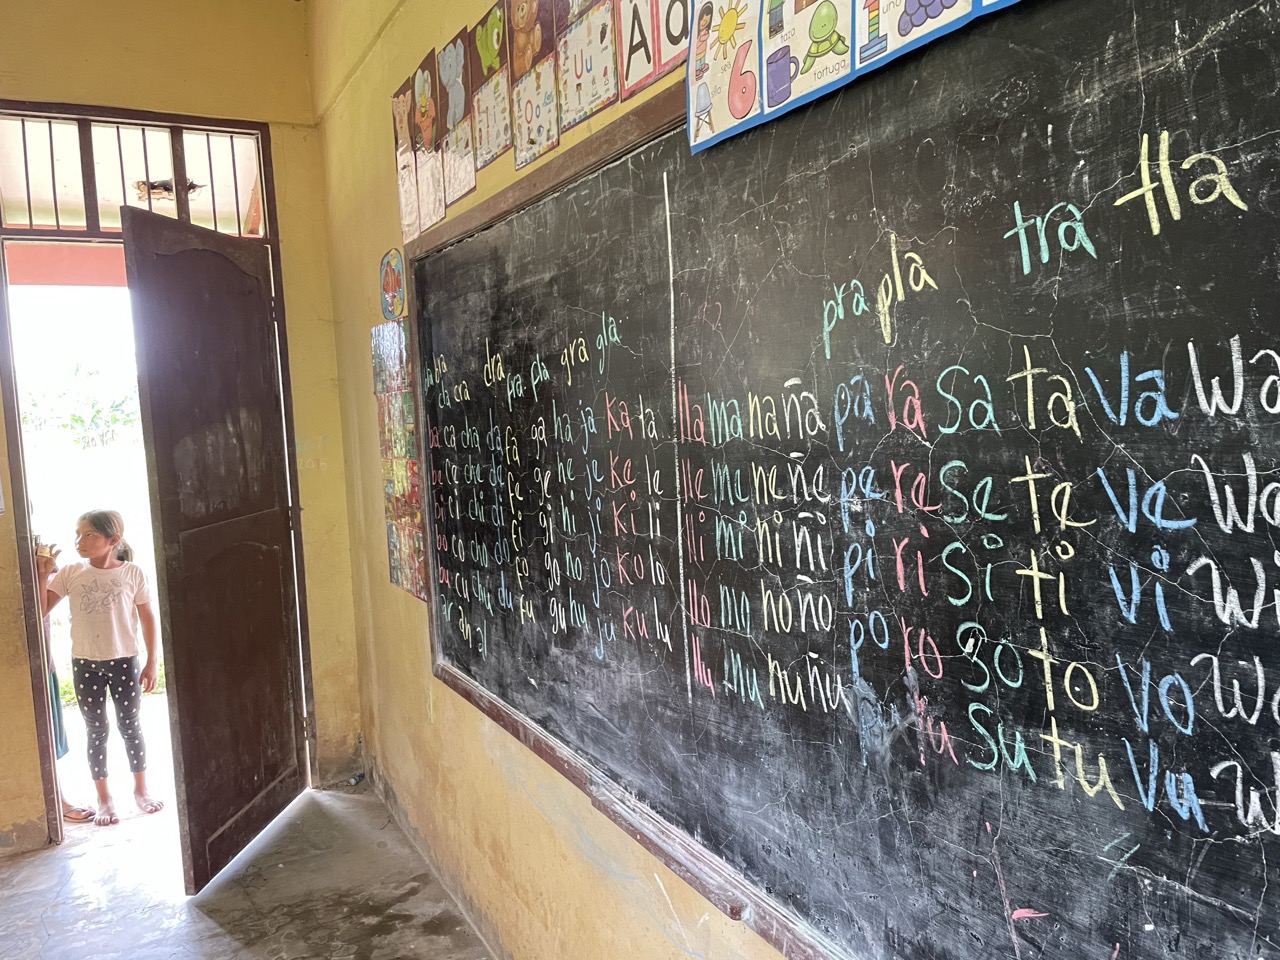 A a
seis
6
silla
taza
tortuga
1
uno
U u
O o
tra tla
pra pla
dra fra fla gra gla
cra
ba ca cha da fa ga ha ja ka la lla ma na ña pa ra sa ta va wa
be ce che de fe ge he je ke le lle me ne ñe pe re se te ve we
bi ci chi di fi gi hi ji ki li lli mi ni ñi pi ri si ti vi wi
bo co cho do fo go ho jo ko lo llo mo no ño po ro so to vo wo
bu cu chu du fu gu hu ju ku lu llu mu nu ñu pu ru su tu vu w
ar an al